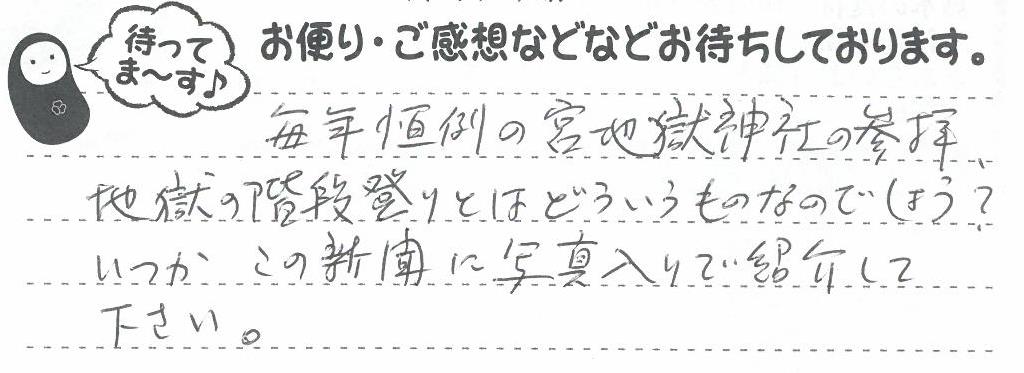 待って
ま〜す♪
お便り・ご感想などなどお待ちしております。
毎年恒例の宮地獄神社の参拝、
地獄の階段登りとはどういうものなのでしょう?
いつか この新聞に写真入りで紹介して
下さい。